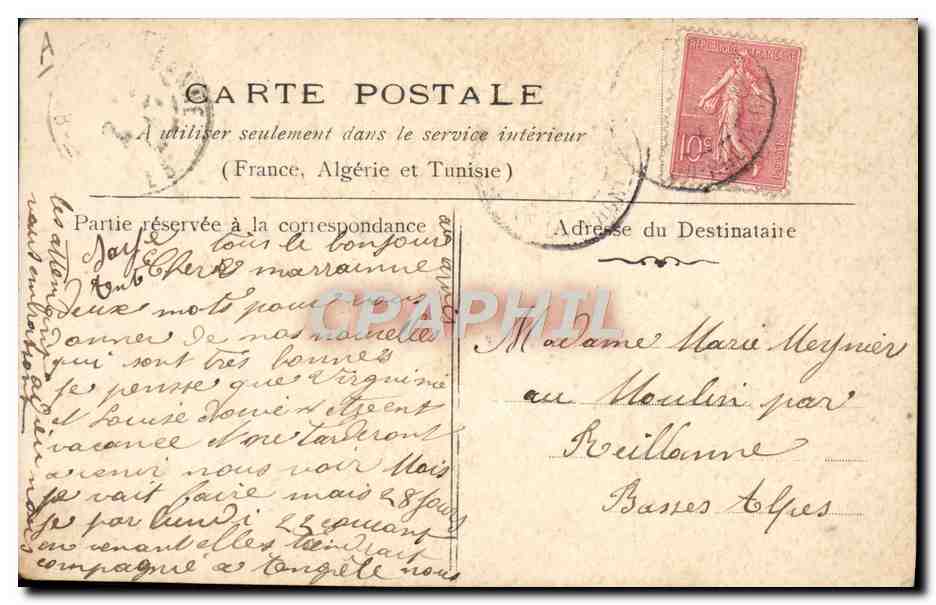 A1
RÉPUBLIQUE FRANÇAISE
10c
POSTES
CARTE POSTALE
A utiliser seulement dans le service intérieur
(France, Algérie et Tunisie)
Partie réservée à la correspondance
Adresse du Destinataire
tous le bonjour
Chere marrainne
Deux mots pour vous
donner de nos nouvelles
qui sont très bonnes
Je pensse que Virguinie
et Louise
vacance Nore tarderont
a venir nous voir Mais
je vait faire mais 28 Jours
je par lundi 22 courant
en venant elles tiendrait
compagnié a Engèle nous
les attendont adieu nous
vous embrassont
CPAPHIL
Madame Marie Meynier
au Moulin par
Reillanne
Basses Alpes